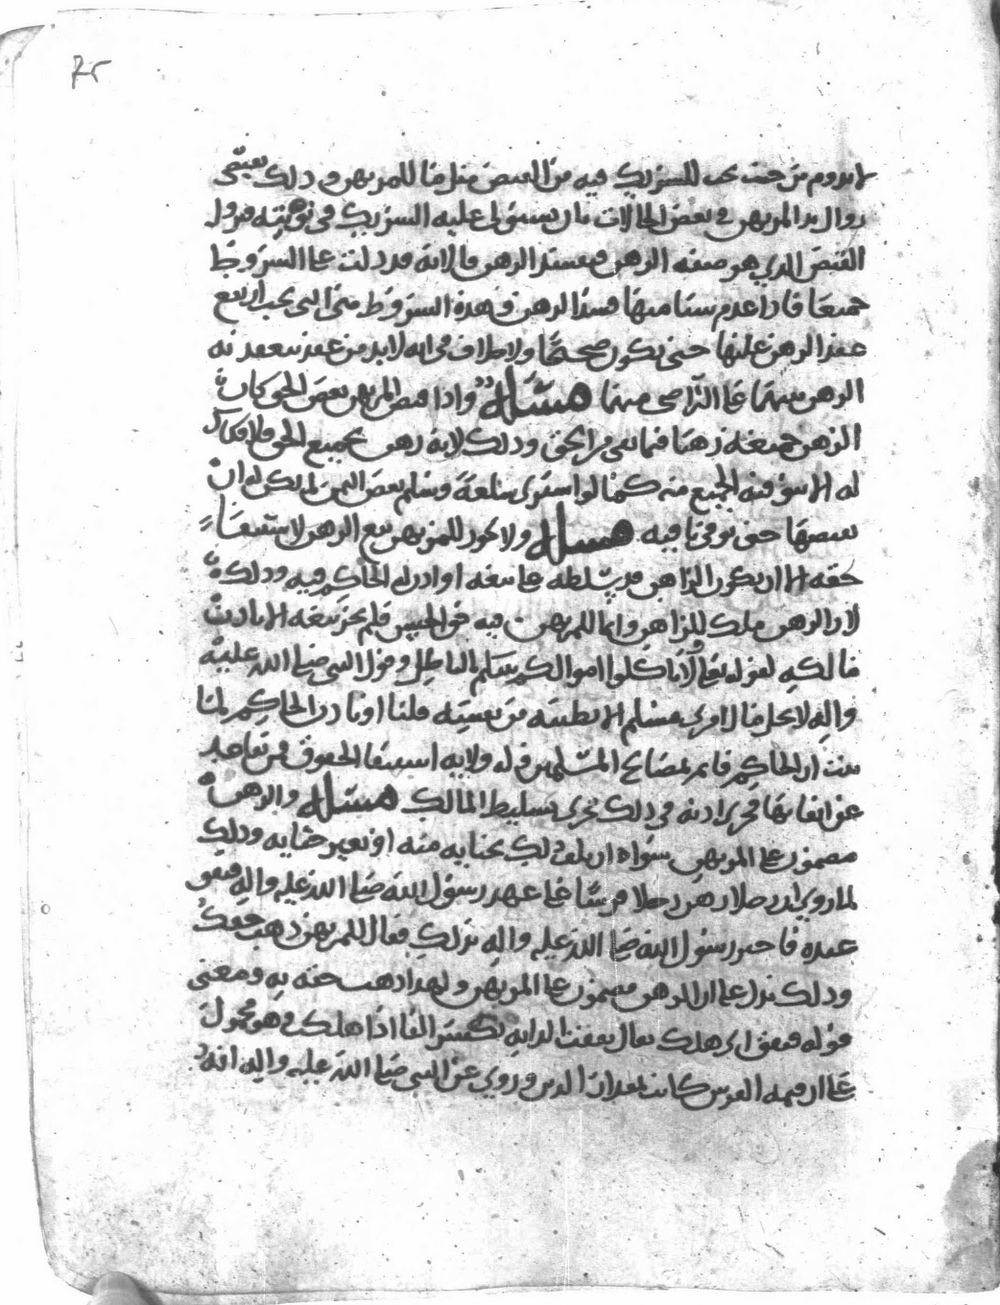 لا يدوم من حيث يجب للشريك فيه من القبض مثل ما للمرتهن وذلك يقتضي
زوال يد المرتهن في بعض الحالات بأن يستولي عليه الشريك في نوبته فيزول
القبض الذي هو صفة الرهن فيفسد الرهن قال لأنه قد دلت على الشروط
جميعا فإذا عدم شيئا منها فسد الرهن فهذه الشروط متى التي يجب أن يقع
عقد الرهن عليها حتى يكون صحيحا ولا خلاف في أنه لا بد من عقد ينعقد به
الرهن بينهما على التراضي منهما مسئلة وإذا قبض المرتهن بعض الحق كان
الرهن جميعه رهنا فيما بقي من الحق وذلك لأنه رهن بجميع الحق فلا فكاك
له إلا بتوفية الجميع منه كما لو اشترى سلعة وسلم بعض الثمن لم يكن له أن
يقبضها حتى يوفي باقيه مسئلة ولا يجوز للمرتهن بيع الرهن لاستيفاء
حقه إلا أن يكون الراهن قد سلطه على بيعه أو أذن له الحاكم فيه وذلك
لأن الرهن ملك للراهن وإنما للمرتهن فيه حق الحبس فلم يجز بيعه إلا بإذن
مالكه لقوله تعالى لا تأكلوا أموالكم بينكم بالباطل وقول النبي صلى الله عليه
وآله لا يحل مال امرئ مسلم إلا بطيبة من نفسه قلنا أو بإذن الحاكم لما
ثبت أن الحاكم قائم بمصالح المسلمين وله ولاية استيفاء الحقوق ممن تقاعد
عن إيفائها فجرى إذنه في ذلك مجرى تسليط المالك مسئلة والرهن
مضمون على المرتهن سواء إن تلف ذلك بجناية منه أو بغير جناية وذلك
لما روي أن رجلا رهن رجلا فرسا على عهد رسول الله صلى الله عليه وآله فنفق
عنده فأخبر رسول الله صلى الله عليه وآله بذلك فقال للمرتهن ذهب حقك
وذلك يدل على أن الرهن مضمون على المرتهن ولهذا ذهب حقه به ومعنى
قوله فنفق أي هلك يقال نفقت الدابة بكسر الفاء إذا هلكت وهو محمول
على أن قيمة الفرس كانت بمقدار الدين وروي عن النبي صلى الله عليه وآله أنه